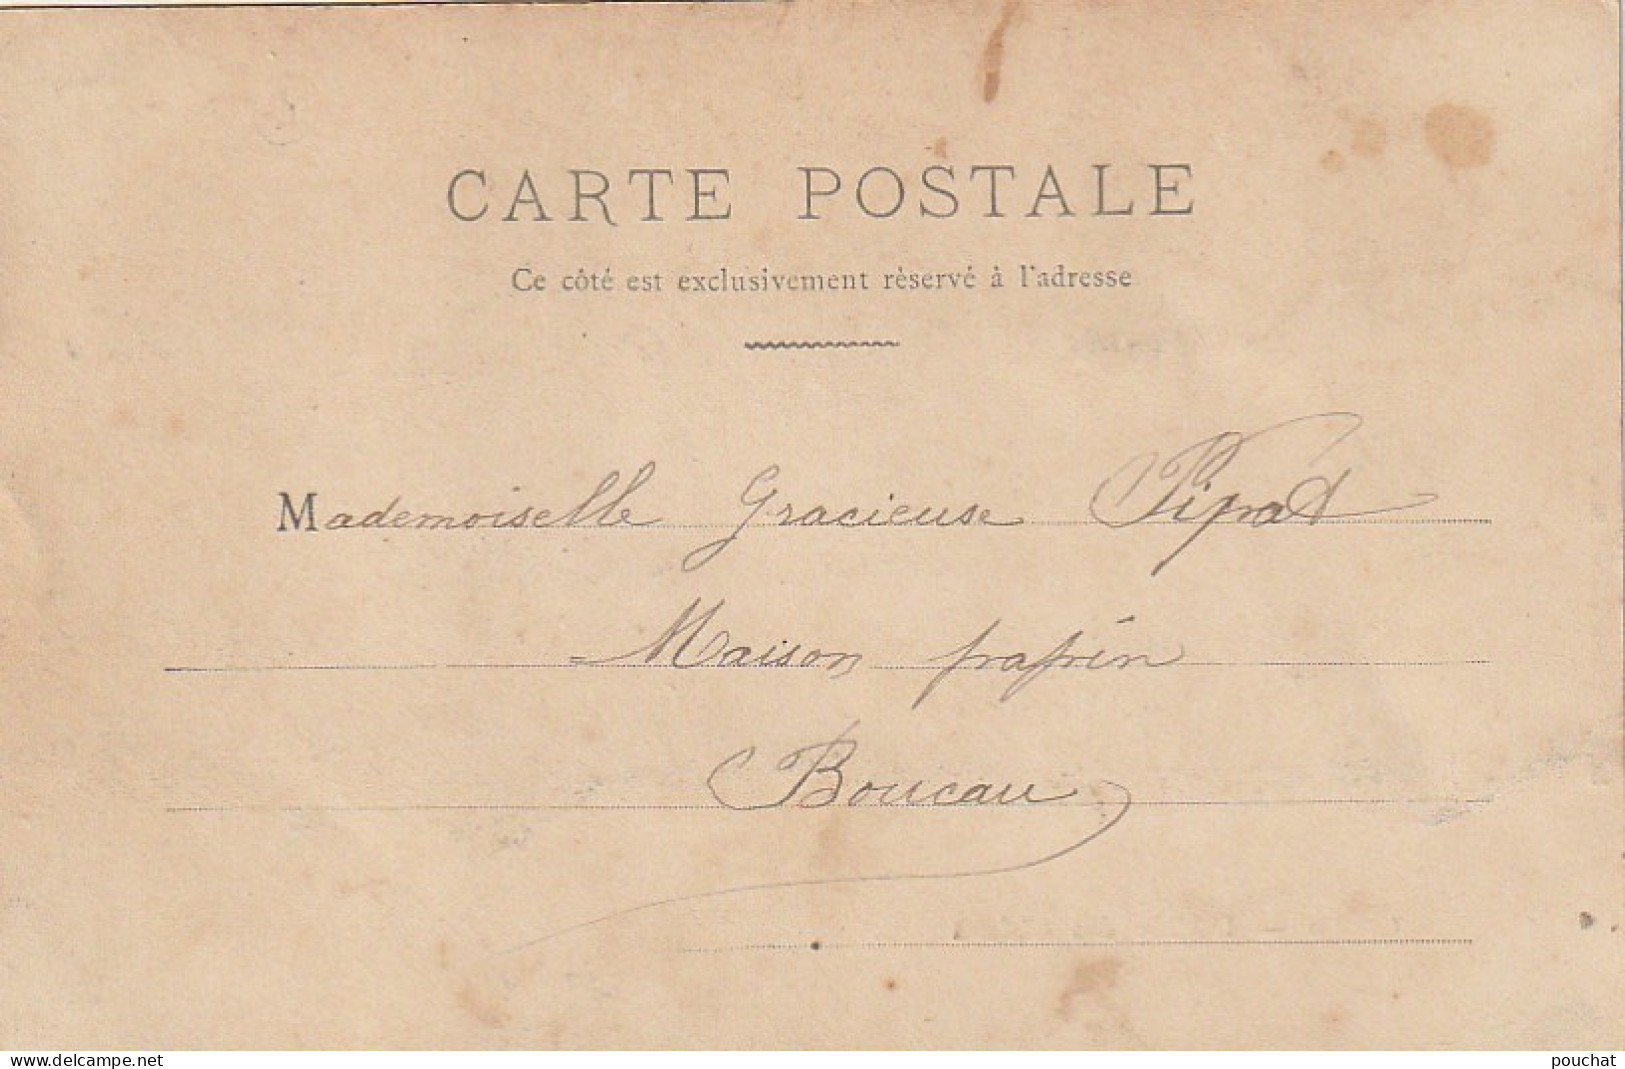 CARTE POSTALE
Ce côté est exclusivement rèservé à l'adresse
Mademoiselle Gracieuse Pipat
Maison prapin
Boucau
www.delcampe.net
pouchat